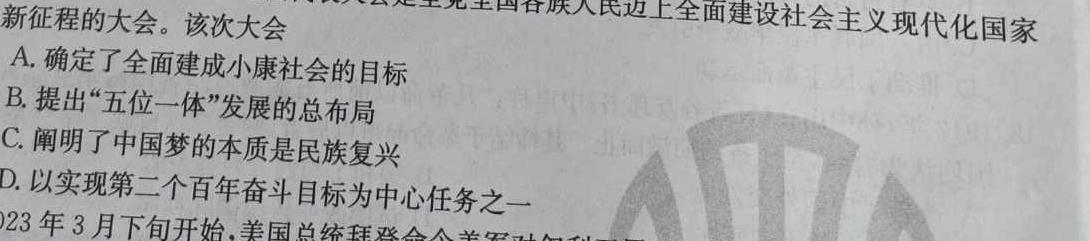 代表大会是全党全国各族人民迈上全面建设社会主义现代化国家
新征程的大会。该次大会
A. 确定了全面建成小康社会的目标
B. 提出“五位一体”发展的总布局
C. 阐明了中国梦的本质是民族复兴
D. 以实现第二个百年奋斗目标为中心任务之一
023 年 3 月下旬开始,美国总统拜登命令美军对叙利